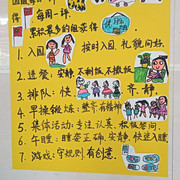 每周一评
累积最多的组获得
1、入园: 按时入园,礼貌问好。
2、进餐: 安静 不剩饭 不撒饭
3、排队: 快 齐 静。
4、早操锻炼: 整齐有精神
5、集体活动: 专注认真、积极答问
6、午睡: 睡姿正确、安静、快速入睡
7、游戏: 守规则 有创意。